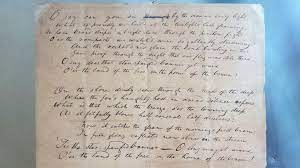 O say can you see by the dawn's early light
What so proudly we hail'd at the twilight's last gleaming
Whose broad stripes & bright stars through the perilous fight
O'er the ramparts we watch'd were so gallantly streaming
And the rocket's red glare the bomb bursting in air
Gave proof through the night that our flag was still there
O say does that star spangled banner yet wave
O'er the land of the free & the home of the brave
On the shore dimly seen through the mists of the deep
Where the foe's haughty host in dread silence reposes
What is that which the breeze o'er the towering steep
As it fitfully blows half conceals half discloses
Now it catches the gleam of the morning's first beam
In full glory reflected now shines in the stream
'Tis the star-spangled banner – O long may it wave
O'er the land of the free & the home of the brave